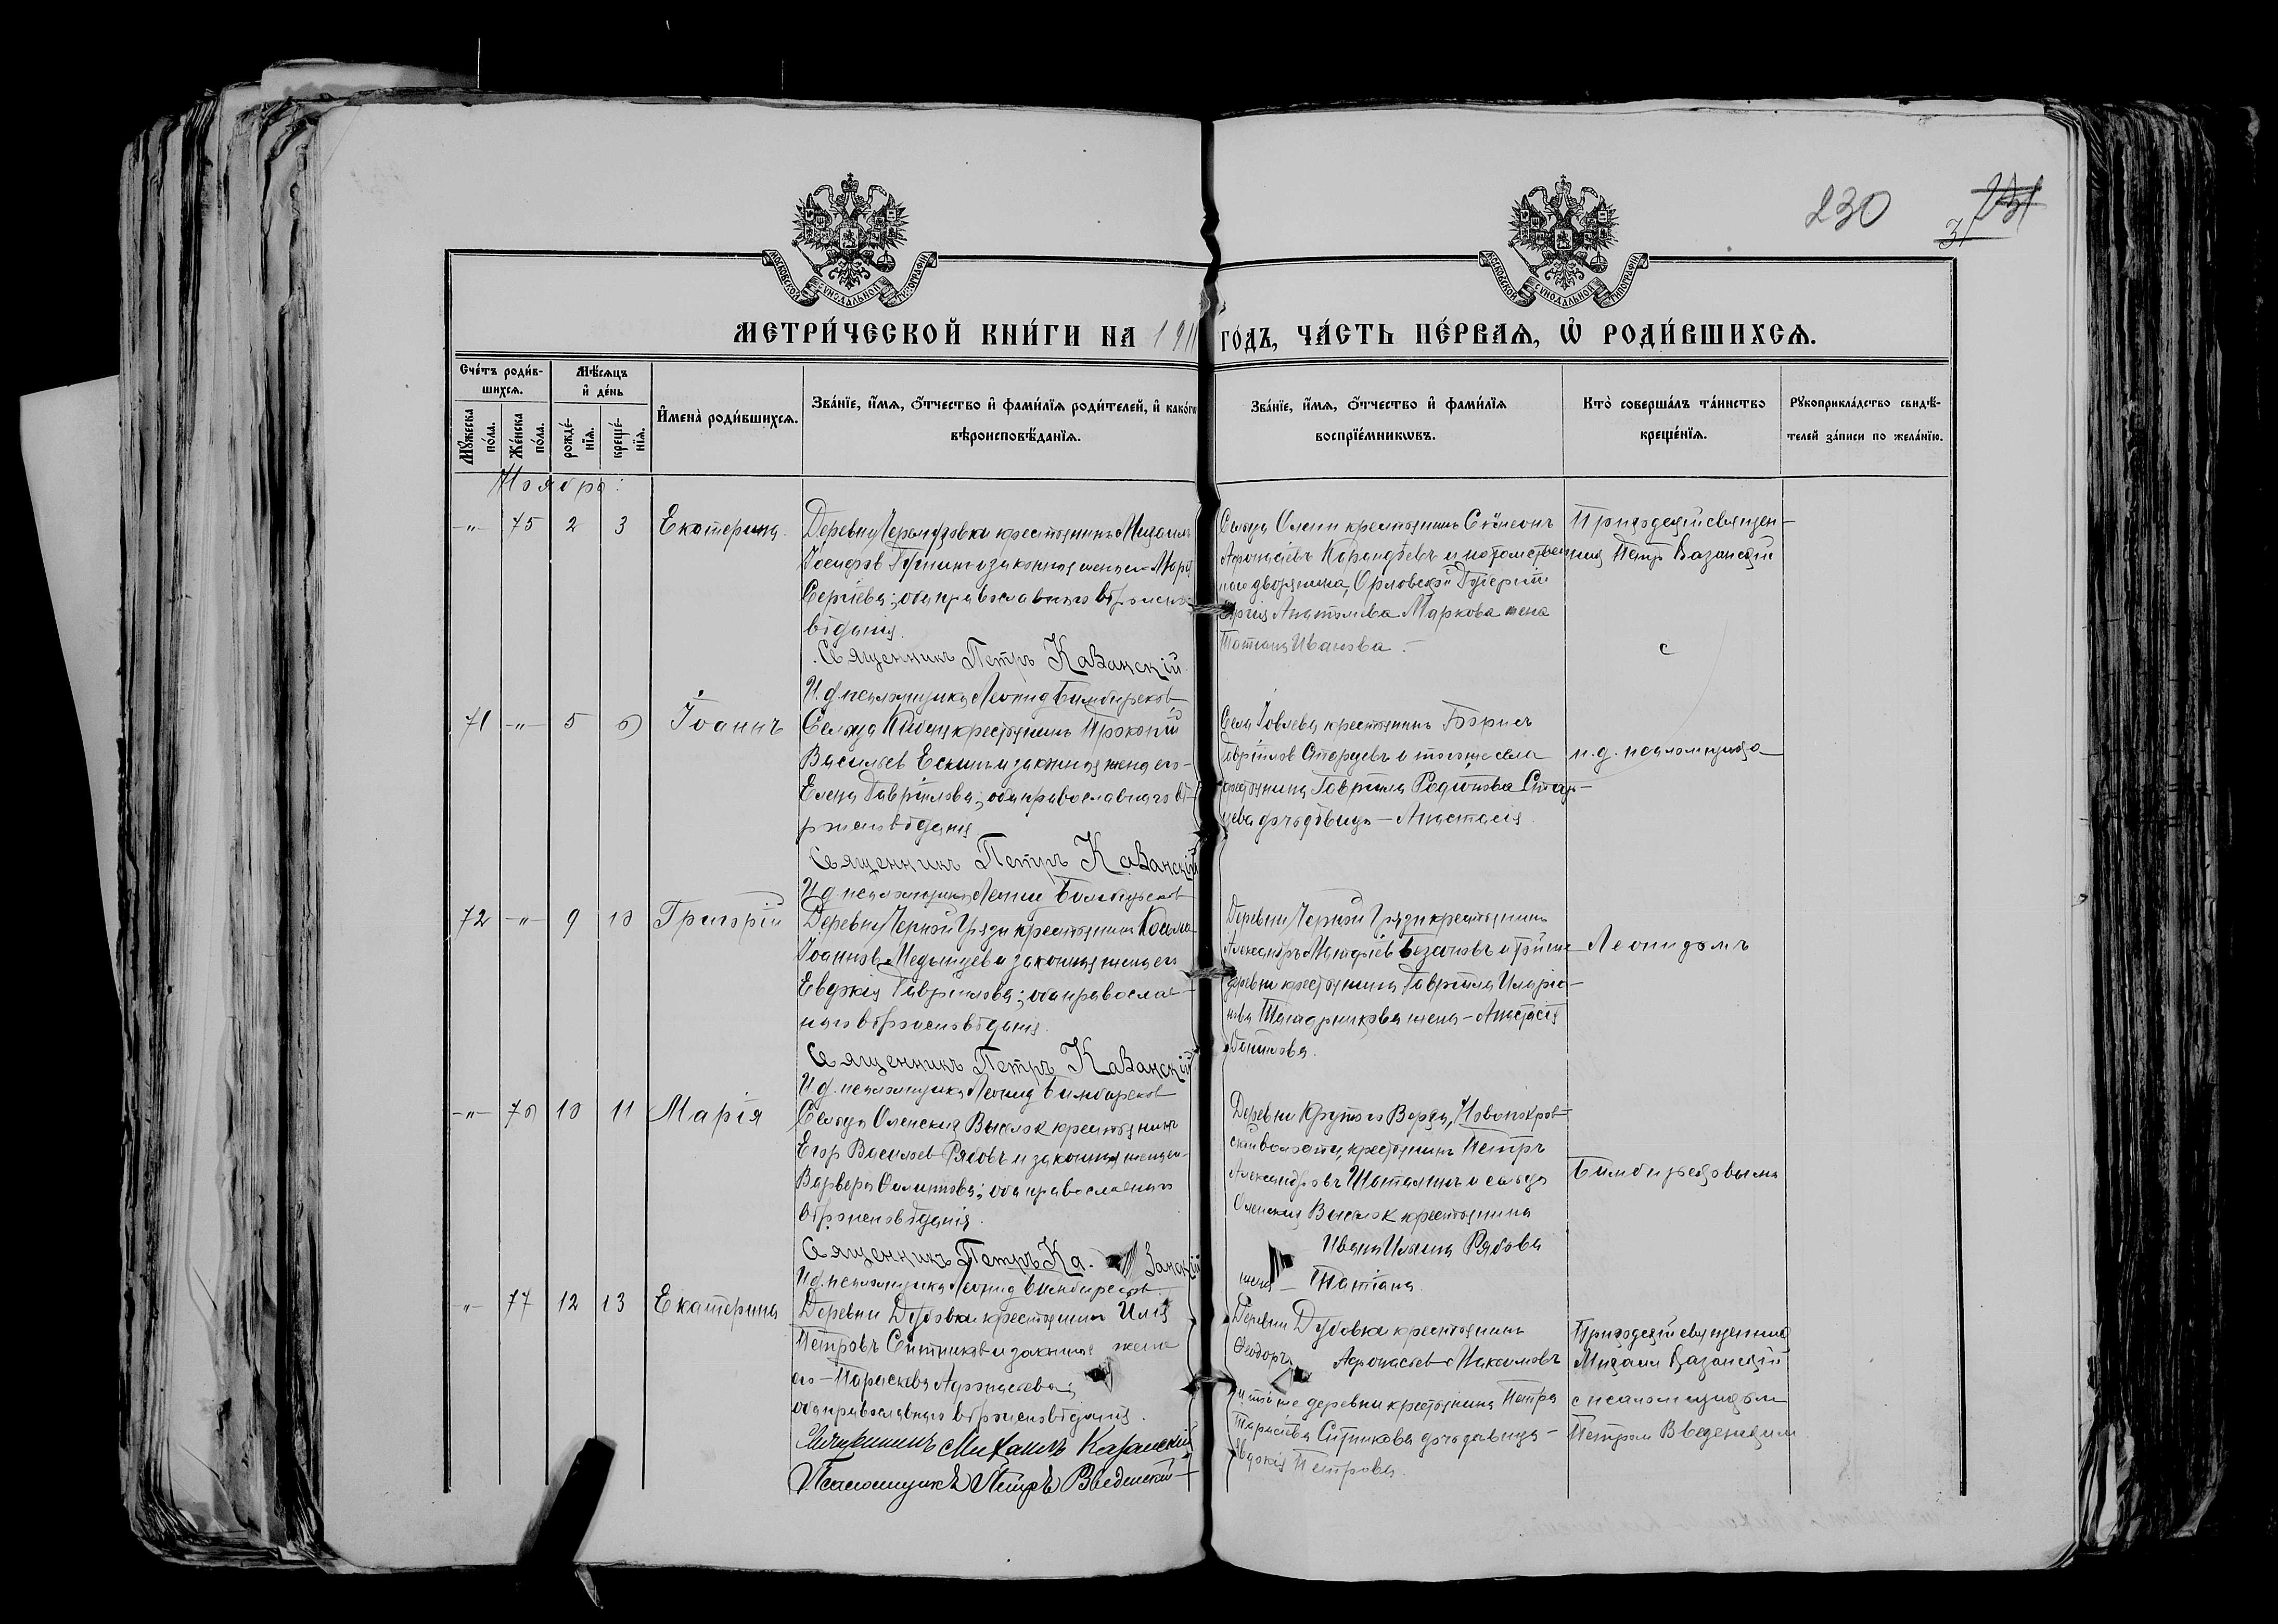 230
231
31
МОСКОВСКОЙ СѴНОДАЛЬНОЙ ТИПОГРАФІИ
МОСКОВСКОЙ СѴНОДАЛЬНОЙ ТИПОГРАФІИ
МЕТРИ́ЧЕСКОЙ КНИ́ГИ НА 1911 ГО́ДЪ, ЧА́СТЬ ПЕ́РВАѦ, Ѡ҆ РОДИ́ВШИХСѦ.
Сче́тъ роди́в-
шихсѧ.
Мꙋ́жеска по́ла.
Же́нска по́ла.
Мѣ́сѧцъ
и҆ де́нь
рожде́-
нїѧ.
креще́-
нїѧ.
И҆мена̀ роди́вшихсѧ.
Зва́нїе, и҆́мѧ, ѻ҆́тчество и҆ фами́лїѧ роди́телей, и҆ како́гѡ
вѣроисповѣ́данїѧ.
Зва́нїе, и҆́мѧ, ѻ҆́тчество и҆ фами́лїѧ
воспрїе́мникѡвъ.
Кто̀ соверша́лъ та́инство
креще́нїѧ.
Рꙋкоприкла́дство свидѣ́-
телей за́писи по жела́нїю.
Ноябрь:
-"- 75 2 3 Екатерина
Деревни крестьянинъ Михаилъ
Іосифов и законная жена его Марія
Сергіева; оба православнаго вѣроиспо-
вѣданія.
Священникъ Петръ Казанскій
И. д. псаломщика Леонид Бимбиреков
Сельца Олени крестьянинъ Сѵмеонъ
Афанасіевъ и потомствен-
наго дворянина, Орловской Губерніи
Сергія Анатоліева Маркова жена
Татіана Иванова.-
Приходскій священ-
ник Петр Казанскій
с
71 -"- 5 6 Іоаннъ
Сельца крестьянинъ Прокопій
Васильев Ескин и законная жена его-
Елена Гавріилова; оба православнаго вѣ-
роисповѣданія
Священникъ Петръ Казанскій
И. д. псаломщика Леонид Бимбиреков
Села Іовлева крестьянинъ Борисъ
Гавріилов Старцевъ и того же села
крестьянина Гавріила Родіонова Стар-
цева дочь дѣвица - Анастасія.
и. д. псаломщика
72 -"- 9 10 Григорій
Деревни Черной Гряди крестьянинъ Косма
Іоаннов Медынцев и законная жена его
Евдокія Гавріилова; оба православ-
наго вѣроисповѣданія.
Священникъ Петръ Казанскій
И. д. псаломщика Леонид Бимбиреков
Деревни Черной Гряди крестьянинъ
Александръ и той же
деревни крестьянина Гавріила Иларіо-
нова жена - Анастасія
Данилова.
Леонидомъ
-"- 76 10 11 Марія
Сельца Оленския Выселок крестьянинъ
Егор Васильев Рябовъ и законная жена его-
Варвара Филиппова; оба православнаго
вѣроисповѣданія.
Священникъ Петръ Ка. занскій
И. д. псаломщика Леонид Бимбиреков
Деревни Крутого Верха, Новопокров-
ской волости, крестьянинъ Петръ
Александровъ Шаталинъ и сельца
Оленския Выселок крестьянина
Ивана Ильина Рябова
жена - Татіана.
Бимбирековымъ
-"- 77 12 13 Екатерина
Деревни Дубовки крестьянинъ Илія
Петровъ Ситников и законная жена
его - Параскева Афанасіева;
оба православнаго вѣроисповѣданія.
Священникъ Михаилъ Казанскій
Псаломщикъ Петръ Введенскій
Деревни Дубовки крестьянинъ
Ѳеодоръ Афанасьев Максимовъ
и той же деревни крестьянина Петра
Тарасіева Ситникова дочь дѣвица -
Евдокія Петрова.
Приходскій священник
Михаил Казанскій
с псаломщиком
Петром Введенским